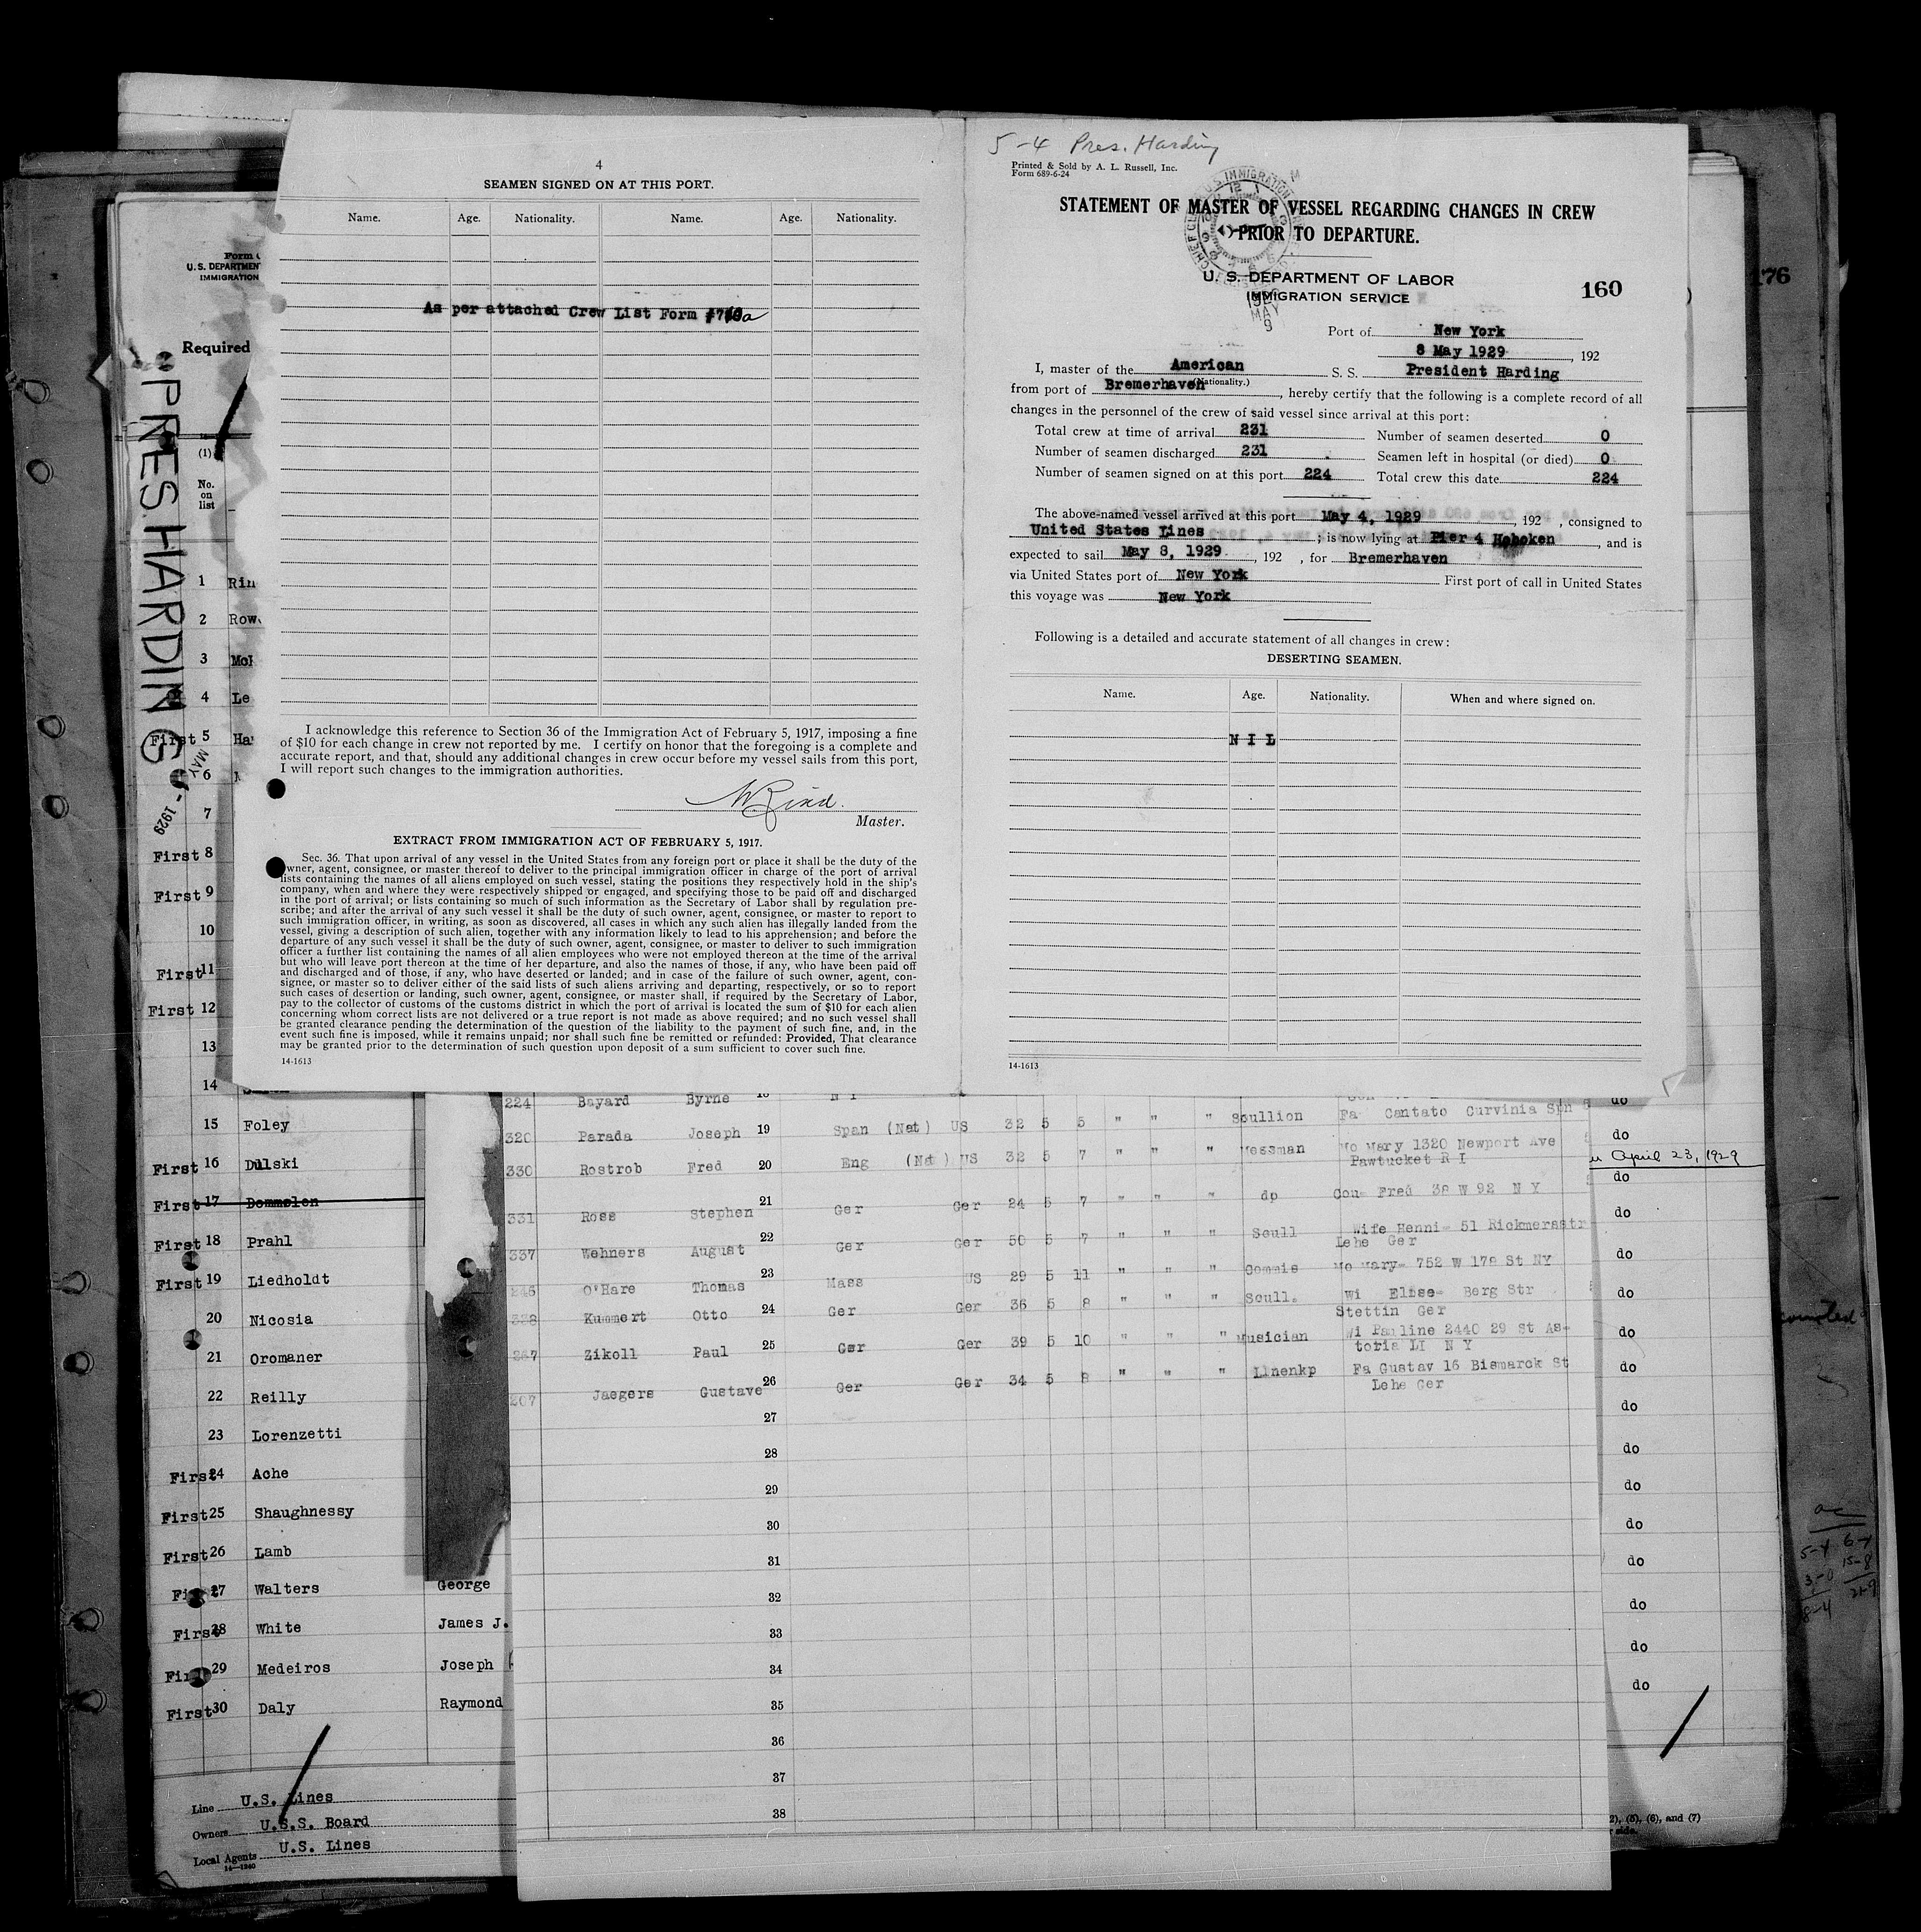 4
SEAMEN SIGNED ON AT THIS PORT.
Name. Age. Nationality. Name. Age. Nationality.
As per attached Crew List Form
I acknowledge this reference to Section 36 of the Immigration Act of February 5, 1917, imposing a fine
of $10 for each change in crew not reported by me. I certify on honor that the foregoing is a complete and
accurate report, and that, should any additional changes in crew occur before my vessel sails from this port,
I will report such changes to the immigration authorities.
Master.
EXTRACT FROM IMMIGRATION ACT OF FEBRUARY 5, 1917.
Sec. 36. That upon arrival of any vessel in the United States from any foreign port or place it shall be the duty of the
owner, agent, consignee, or master thereof to deliver to the principal immigration officer in charge of the port of arrival
lists containing the names of all aliens employed on such vessel, stating the positions they respectively hold in the ship's
company, when and where they were respectively shipped or engaged, and specifying those to be paid off and discharged
in the port of arrival; or lists containing so much of such information as the Secretary of Labor shall by regulation pre-
scribe; and after the arrival of any such vessel it shall be the duty of such owner, agent, consignee, or master to report to
such immigration officer, in writing, as soon as discovered, all cases in which any such alien has illegally landed from the
vessel, giving a description of such alien, together with any information likely to lead to his apprehension; and before the
departure of any such vessel it shall be the duty of such owner, agent, consignee, or master to deliver to such immigration
officer a further list containing the names of all alien employees who were not employed thereon at the time of the arrival
but who will leave port thereon at the time of her departure, and also the names of those, if any, who have been paid off
and discharged and of those, if any, who have deserted or landed; and in case of the failure of such owner, agent, con-
signee, or master so to deliver either of the said lists of such aliens arriving and departing, respectively, or so to report
such cases of desertion or landing, such owner, agent, consignee, or master shall, if required by the Secretary of Labor,
pay to the collector of customs of the customs district in which the port of arrival is located the sum of $10 for each alien
concerning whom correct lists are not delivered or a true report is not made as above required; and no such vessel shall
be granted clearance pending the determination of the question of the liability to the payment of such fine, and, in the
event such fine is imposed, while it remains unpaid; nor shall such fine be remitted or refunded: Provided, That clearance
may be granted prior to the determination of such question upon deposit of a sum sufficient to cover such fine.
14-1613
5-4 Pres. Harding
Printed & Sold by A. L. Russell, Inc.
Form 689-6-24
STATEMENT OF MASTER OF VESSEL REGARDING CHANGES IN CREW
PRIOR TO DEPARTURE.
U. S. DEPARTMENT OF LABOR
IMMIGRATION SERVICE
160
MAY
9
Port of New York
8 May 1929, 192
I, master of the American S. S. President Harding
(Nationality.)
from port of Bremerhaven, hereby certify that the following is a complete record of all
changes in the personnel of the crew of said vessel since arrival at this port:
Total crew at time of arrival 231 Number of seamen deserted 0
Number of seamen discharged 231 Seamen left in hospital (or died) 0
Number of seamen signed on at this port 224 Total crew this date 224
The above-named vessel arrived at this port May 4, 1929 192 , consigned to
United States Lines ; is now lying at Pier 4 Hoboken, and is
expected to sail May 8, 1929, 192 , for Bremerhaven
via United States port of New York First port of call in United States
this voyage was New York
Following is a detailed and accurate statement of all changes in crew:
DESERTING SEAMEN.
Name. Age. Nationality. When and where signed on.
N I L
14-1613
176
U. S. DEPARTMENT
IMMIGRATION
Required
PRES. HARDING
MAY 1929
(1)
No.
on
list
1 Rin
2 Row
3
4 Le
First 5 Ha
6
7
First 8
First 9
10
First 11
First 12
13
14
15 Foley
First 16 Dulski
First 17 Dommolen
First 18 Prahl
First 19 Liedholdt
20 Nicosia
21 Oromaner
22 Reilly
23 Lorenzetti
First 24 Ache
First 25 Shaughnessy
First 26 Lamb
First 27 Walters George
First 28 White James J.
First 29 Medeiros Joseph
First 30 Daly Raymond
Line U.S. Lines
Owners U.S.S. Board
Local Agents U.S. Lines
14-1240
224 Bayard Byrne 18 N Y
320 Parada Joseph 19 Span (Nat) US 32 5 5 " " " Scullion Fa Cantato Curvinia Spn
330 Rostrob Fred 20 Eng (Nat) US 32 5 7 " " " Messman Mo Mary 1320 Newport Ave
Pawtucket R I
331 Ross Stephen 21 Ger Ger 24 5 7 " " " do Cou- Fred 38 W 92 N Y
337 Wehners August 22 Ger Ger 50 5 7 " " " Scull Wife Henni- 51 Rickmersstr
Lehe Ger
246 O'Hare Thomas 23 Mass US 29 5 11 " " " Commis Mo Mary- 752 W 178 St NY
338 Kummert Otto 24 Ger Ger 36 5 8 " " " Scull. Wi Elise- Berg Str
Stettin Ger
247 Zikoll Paul 25 Ger Ger 39 5 10 " " " Musician Wi Pauline 2440 29 St As-
toria LI N Y
207 Jaegers Gustave 26 Ger Ger 34 5 8 " " " Linenkp Fa Gustav 16 Bismarck St
Lehe Ger
27
28
29
30
31
32
33
34
35
36
37
38
do
do
April 23, 1929
do
do
do
do
do
do
do
do
do
do
do
do
do
do
5-4 6-4
15-8
3-0
8-4 21-9
(5), (6), and (7)
side.